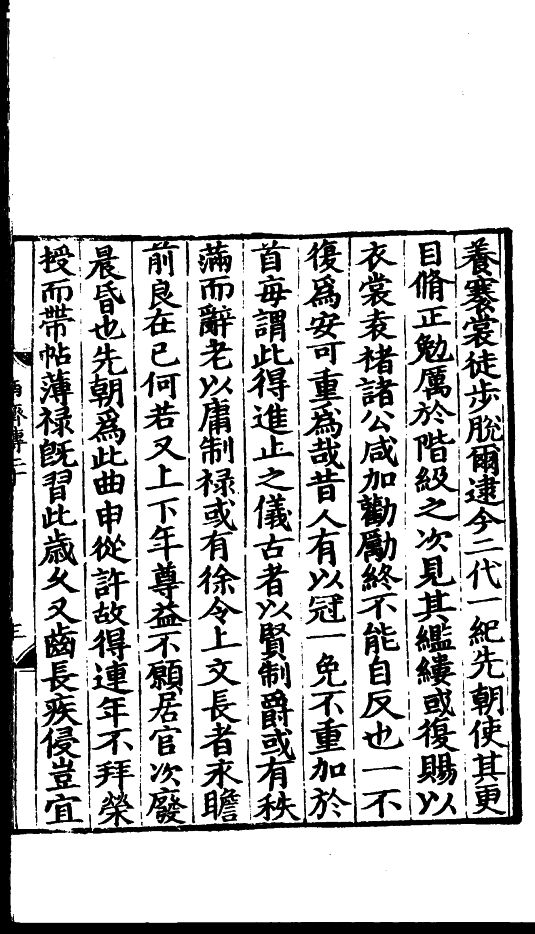 養褰裳徒步脫爾逮今二代一紀先朝使其更
自脩正勉厲於階級之次見其繿縷或復賜以
衣裳袁褚諸公咸加勸勵終不能自反也一不
復爲安可重爲哉昔人有以冠一免不重加於
首每謂此得進止之儀古者以賢制爵或有秩
滿而辭老以庸制禄或有徐令上文長者求瞻
前良在己何若又上下年尊益不願居官次廢
晨昏也先朝爲此曲申從許故得連年不拜榮
授而帶帖薄禄旣習此歳乆又齒長疾侵豈宜
三